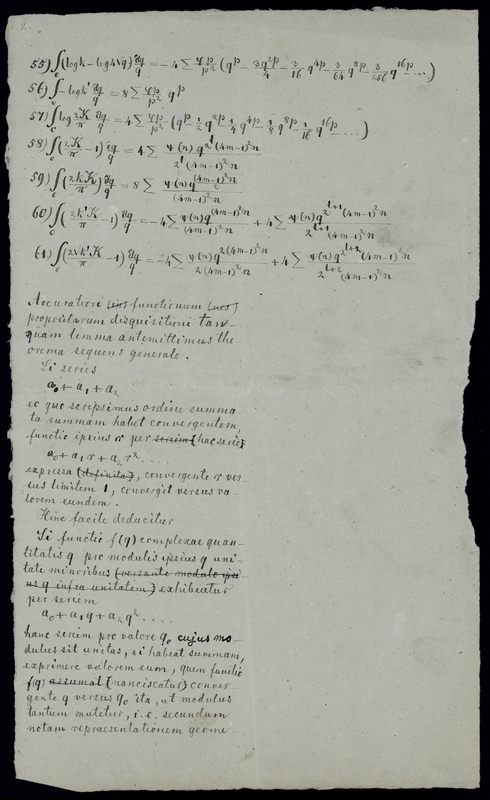 55) ∫₀ (log k − log 4√q) dq/q = −4 Σ φp/p² (q^p − 3q^{2p}/4 − 3/16 q^{4p} − 3/64 q^{8p} − 3/256 q^{16p} − ...)
56) ∫₀ −log k' dq/q = 8 Σ φp/p² q^p
57) ∫₀ log 2K/π dq/q = 4 Σ φp/p² (q^p − 1/2 q^{2p} − 1/4 q^{4p} − 1/8 q^{8p} − 1/16 q^{16p} − ...)
58) ∫₀ (2K/π − 1) dq/q = 4 Σ ψ(n) q^{2^l (4m−1)² n} / 2^l (4m−1)² n
59) ∫₀ (2kK/π) dq/q = 8 Σ ψ(n) q^{(4m−1)² n / 2} / (4m−1)² n
60) ∫₀ (2k'K/π − 1) dq/q = −4 Σ ψ(n) q^{(4m−1)² n} / (4m−1)² n + 4 Σ ψ(n) q^{2^{l+1} (4m−1)² n} / 2^{l+1} (4m−1)² n
61) ∫₀ (2√k' K/π − 1) dq/q = −4 Σ ψ(n) q^{2(4m−1)² n} / 2(4m−1)² n + 4 Σ ψ(n) q^{2^{l+2} (4m−1)² n} / 2^{l+2} (4m−1)² n
Accuratiori functionum
propositarum disquisitioni tan-
quam lemma antemittimus the-
orema sequens generale.
Si series
a₀ + a₁ + a₂
eo quo scripsimus ordine summa-
ta summam habet convergentem,
functio ipsius r per seriem (hac serie)
a₀ + a₁r + a₂r² ....
expressa (definita), convergente r ver-
sus limitem 1, convergit versus va-
lorem eundem.
Hinc facile deducitur
Si functio f(q) complexae quan-
titatis q pro modulis ipsius q uni-
tate minoribus (versante modulo ipsi-
us q infra unitatem) exhibeatur
per seriem
a₀ + a₁q + a₂q² ....
hanc seriem pro valore q₀ cujus mo-
dulus sit unitas, si habeat summam,
exprimere valorem eum, quem functio
f(q) assumat (nanciscatur) conver-
gente q versus q₀ ita, ut modulus
tantum mutetur, i. e. secundum
notam repraesentationem geome-